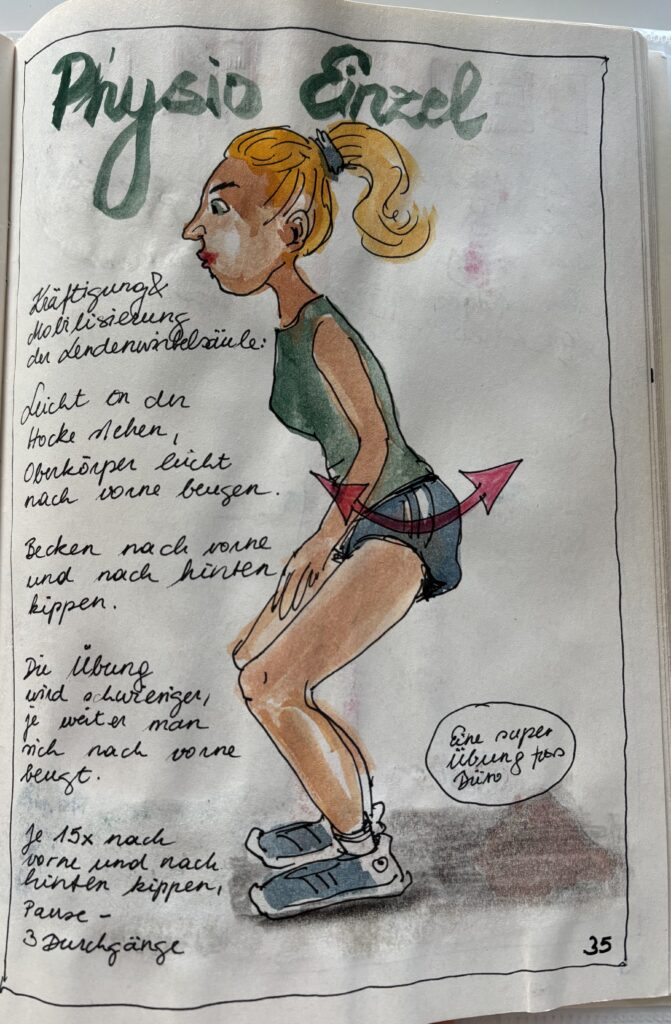 Physio Einzel
Kräftigung &
Mobilisierung
der Lendenwirbelsäule:
Leicht in der
Hocke stehen,
Oberkörper leicht
nach vorne beugen.
Becken nach vorne
und nach hinten
kippen.
Die Übung
wird schwieriger,
je weiter man
sich nach vorne
beugt.
Je 15x nach
vorne und nach
hinten kippen,
Pause -
3 Durchgänge
Eine super
Übung fürs
Büro
35